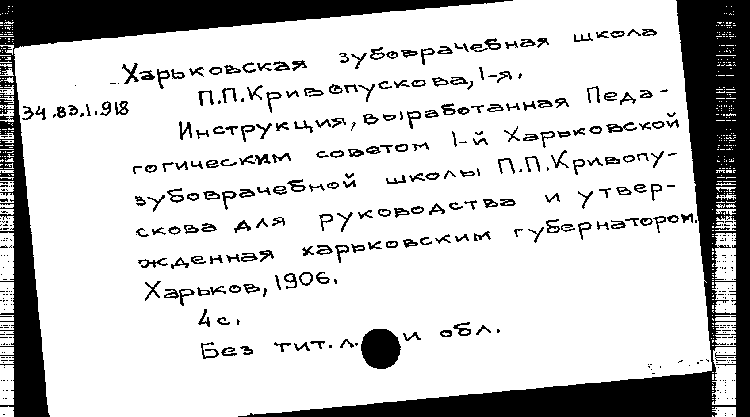 Харьковская зубоврачебная школа
П.П.Кривопускова, 1-я.
34.83.1.918
Инструкция, выработанная Педа-
гогическим советом 1-й Харьковской
зубоврачебной школы П.П.Кривопу-
скова для руководства и утвер-
жденная харьковским губернатором.
Харьков, 1906.
4 с.
Без тит.л. и обл.